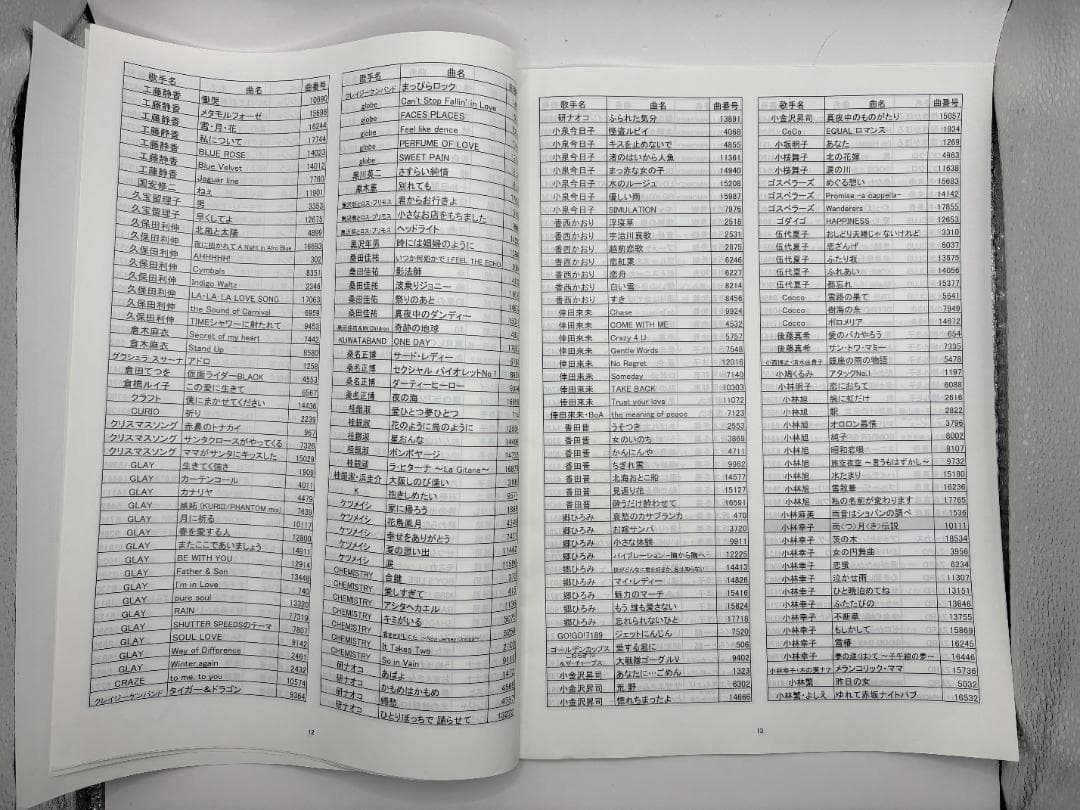 歌手名 曲名 曲番号
工藤静香 慟哭 10690
工藤静香 メタモルフォーゼ 15698
工藤静香 雪・月・花 16244
工藤静香 私について 17744
工藤静香 BLUE ROSE 14023
工藤静香 Blue Velvet 14012
工藤静香 Jaguar line 7780
国安修二 ねぇ 11901
久宝留理子 男 3353
久宝留理子 早くしてよ 12675
久保田利伸 北風と太陽 4899
久保田利伸 夜に抱かれて A Night in Afro Blue 16693
久保田利伸 AHHHHH! 302
久保田利伸 Cymbals 8351
久保田利伸 Indigo Waltz 2346
久保田利伸 LA・LA・LA LOVE SONG 17063
久保田利伸 the Sound of Carnival 6959
久保田利伸 TIMEシャワーに射たれて 9453
倉木麻衣 Secret of my heart 7442
倉木麻衣 Stand Up 8580
グラシェラ・スサーナ アドロ 1258
倉田てつを 仮面ライダーBLACK 4553
倉橋ルイ子 この愛に生きて 6567
クラフト 僕にまかせてください 14436
CURIO 祈り 2239
クリスマスソング 赤鼻のトナカイ 967
クリスマスソング サンタクロースがやってくる 7326
クリスマスソング ママがサンタにキッスした 15029
GLAY 生きてく強さ 1909
GLAY カーテンコール 4011
GLAY カナリヤ 4479
GLAY 嫉妬 (KURID/PHANTOM mix) 7639
GLAY 月に祈る 10117
GLAY 春を愛する人 12800
GLAY またここであいましょう 14911
GLAY BE WITH YOU 12914
GLAY Father & Son 13448
GLAY I'm in Love 740
GLAY pure soul 13320
GLAY RAIN 17319
GLAY SHUTTER SPEEDSのテーマ 7807
GLAY SOUL LOVE 9142
GLAY Way of Difference 2461
GLAY Winter,again 2432
CRAZE to me, to you 10574
クレイジーケンバンド タイガー＆ドラゴン 9364
12
歌手名 曲名
クレイジーケンバンド まっぴらロック
globe Can't Stop Fallin' in Love
globe FACES PLACES
globe Feel like dence
globe PERFUME OF LOVE
globe SWEET PAIN
黒川英二 さすらい純情
黒木憲 別れても
黒沢明とロス・プリモス 君からお行きよ
黒沢明とロス・プリモス 小さなお店をもちました
黒沢明とロス・プリモス ヘッドライト
黒沢年男 時には娼婦のように
桑田佳祐 いつか何処かで I FEEL THE ECHO
桑田佳祐 影法師
桑田佳祐 波乗りジョニー
桑田佳祐 祭りのあと
桑田佳祐 真夜中のダンディー
桑田佳祐&Mr.Children 奇跡の地球
KUWATABAND ONE DAY
桑名正博 サード・レディー
桑名正博 セクシャル バイオレットNo.1
桑名正博 ダーティーヒーロー
桑名正博 夜の海
桂銀淑 愛ひとつ夢ひとつ
桂銀淑 花のように鳥のように
桂銀淑 星おんな
桂銀淑 ボンボヤージ
桂銀淑 ラ・ヒターナ ～La Gitana～
桂銀淑・浜圭介 大阪しのび逢い
K 抱きしめたい
ケツメイシ 家に帰ろう
ケツメイシ 花鳥風月
ケツメイシ 幸せをありがとう
ケツメイシ 夏の思い出
ケツメイシ 涙
CHEMISTRY 合鍵
CHEMISTRY 愛しすぎて
CHEMISTRY アシタヘカエル
CHEMISTRY キミがいる
CHEMISTRY
CHEMISTRY It Takes Two
CHEMISTRY So in Vain
研ナオコ あばよ
研ナオコ かもめはかもめ
研ナオコ
研ナオコ ひとりぽっちで 踊らせて
歌手名 曲名 曲番号
研ナオコ ふられた気分 13891
小泉今日子 怪盗ルビイ 4068
小泉今日子 キスを止めないで 4855
小泉今日子 渚のはいから人魚 11361
小泉今日子 まっ赤な女の子 14940
小泉今日子 水のルージュ 15208
小泉今日子 優しい雨 15987
小泉今日子 SIMULATION 7976
香西かおり 浮寝草 2518
香西かおり 宇治川哀歌 2531
香西かおり 越前恋歌 2875
香西かおり 恋紅葉 6246
香西かおり 恋舟 6227
香西かおり 白い雪 8214
香西かおり すき 8456
倖田來未 Chase 9924
倖田來未 COME WITH ME 4532
倖田來未 Crazy 4 U 5757
倖田來未 Gentle Words 7548
倖田來未 No Regret 12016
倖田來未 Someday 7140
倖田來未 TAKE BACK 10303
倖田來未 Trust your love 11072
倖田來未・BoA the meaning of peace 7123
香田晋 うそつき 2553
香田晋 女のいのち 3869
香田晋 かんにんや 4711
香田晋 ちぎれ雲 9962
香田晋 北海おとこ船 14577
香田晋 見返り花 15127
香田晋 酔うだけ酔わせて 16591
郷ひろみ 哀愁のカサブランカ 470
郷ひろみ お嫁サンバ 3720
郷ひろみ 小さな体験 9911
郷ひろみ バイブレーション～胸から胸へ～ 12225
郷ひろみ 14413
郷ひろみ マイ・レディー 14826
郷ひろみ 魅力のマーチ 15416
郷ひろみ もう誰も愛さない 15824
郷ひろみ 忘れられないひと 17718
GO!GO!7188 ジェットにんじん 7520
ゴールデンカップス 愛する君に 506
こおろぎ'73 &ザ・チャープス 大戦隊ゴーグルV 9402
小金沢昇司 あなたに…ごめん 1323
小金沢昇司 荒野 6302
小金沢昇司 惚れちまったよ 14666
歌手名 曲名 曲番号
小金沢昇司 真夜中のものがたり 15057
CoCo EQUAL ロマンス 1934
小坂明子 あなた 1269
小桜舞子 北の花嫁 4963
小桜舞子 涙の川 11638
ゴスペラーズ めぐる想い 15683
ゴスペラーズ Promise -a cappella- 14142
ゴスペラーズ Wanderers 17855
ゴダイゴ HAPPINESS 12653
伍代夏子 おしどり夫婦じゃないけれど 3310
伍代夏子 恋ざんげ 6037
伍代夏子 ふたり坂 13675
伍代夏子 ふれあい 14056
伍代夏子 都忘れ 15377
Cocco 雲路の果て 5641
Cocco 樹海の糸 7949
Cocco ポロメリア 14672
後藤真希 愛のバカやろう 654
後藤真希 サン・トワ・マミー 7335
銀座の雨の物語 5478
小鳩くるみ アタックNo.1 1197
小林明子 恋におちて 6088
小林旭 腕に虹だけ 2616
小林旭 駅 2822
小林旭 オロロン慕情 3796
小林旭 純子 8002
小林旭 昭和恋唄 8107
小林旭 旅空夜空 ～言うもはずかし～ 9732
小林旭 水たまり 15180
小林旭 雪散華 16236
小林旭 私の名前が変わります 17765
小林麻美 雨音はショパンの調べ 1536
小林幸子 雨(う)月(き)伝説 10111
小林幸子 茨の木 18534
小林幸子 女の円舞曲 3956
小林幸子 恋蛍 6234
小林幸子 泣かせ雨 11307
小林幸子 ひと晩泊めてね 13151
小林幸子 ふたたびの 13646
小林幸子 不断草 13755
小林幸子 もしかして 15869
小林幸子 雪椿 16245
小林幸子 夢の涯(はて) ～子午線の夢～ 16446
メランコリック・ママ 15736
小林繁 昨日の女 5032
小林繁・よしえ ゆれて赤坂ナイトパブ 16532
13